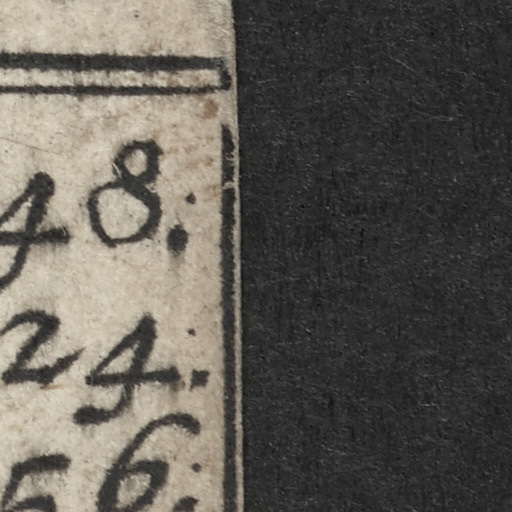 48.
24.
56.